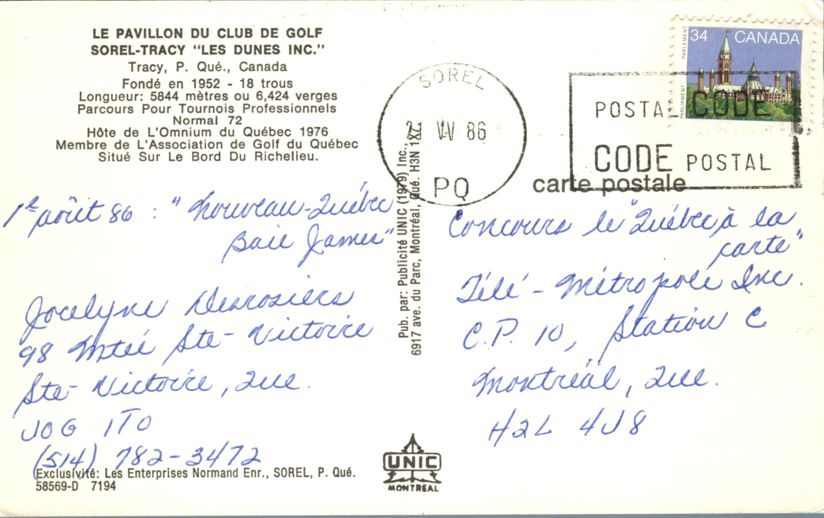 LE PAVILLON DU CLUB DE GOLF
SOREL-TRACY "LES DUNES INC."
Tracy, P. Qué., Canada
Fondé en 1952 - 18 trous
Longueur: 5844 mètres ou 6,424 verges
Parcours Pour Tournois Professionnels
Normal 72
Hôte de L'Omnium du Québec 1976
Membre de L'Association de Golf du Québec
Situé Sur Le Bord Du Richelieu.
1er août 86 : "Nouveau-Québec
Baie James"
Jocelyne Desrosiers
98 Mtée Ste-Victoire
Ste-Victoire, Que.
J0G 1T0
(514) 782-3472
Exclusivité: Les Enterprises Normand Enr., SOREL, P. Qué.
58569-D 7194
Pub. par: Publicité UNIC (1979) Inc.,
6917 ave. du Parc, Montréal, Qué. H3N 1X7
UNIC
MONTREAL
SOREL
86
PQ
34 CANADA
PARLEMENT
PARLIAMENT
POSTAL CODE
CODE POSTAL
carte postale
Concours le "Québec à la
carte"
Télé-Métropole Inc.
C.P. 10, Station C
Montréal, Que.
H2L 4J8